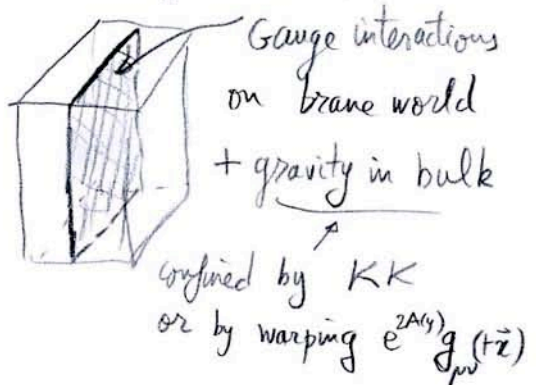 Gauge interactions
on brane world
+ gravity in bulk
confined by KK
or by warping e^{2A(y)} g_{μν}(t\vec{x})